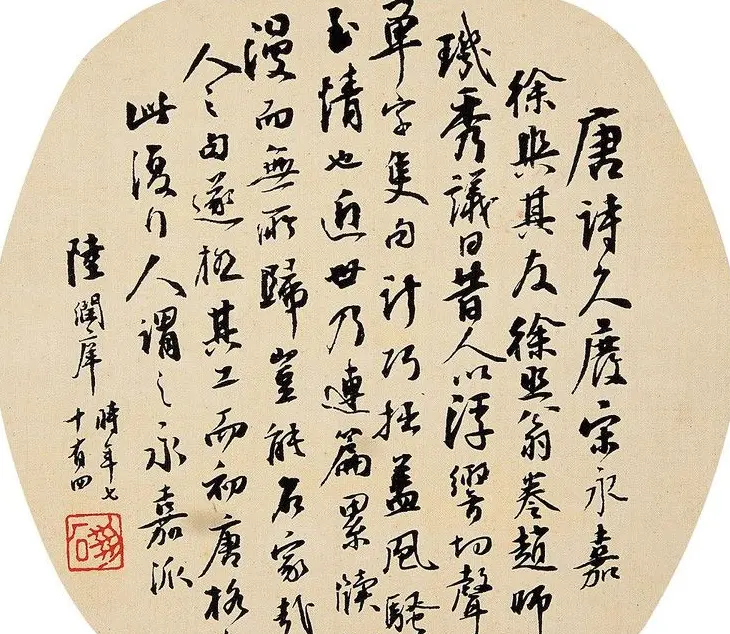 唐詩久廢宋永嘉
徐與其友徐照翁卷趙師
璣秀議曰昔人以浮響切聲
單字隻句計巧拙蓋風騷
至情也近世乃連篇累牘
漫而無所歸豈能名家哉
人之句遂極其工而初唐格
此復行人謂之永嘉派
陸潤庠
時年七
十有四